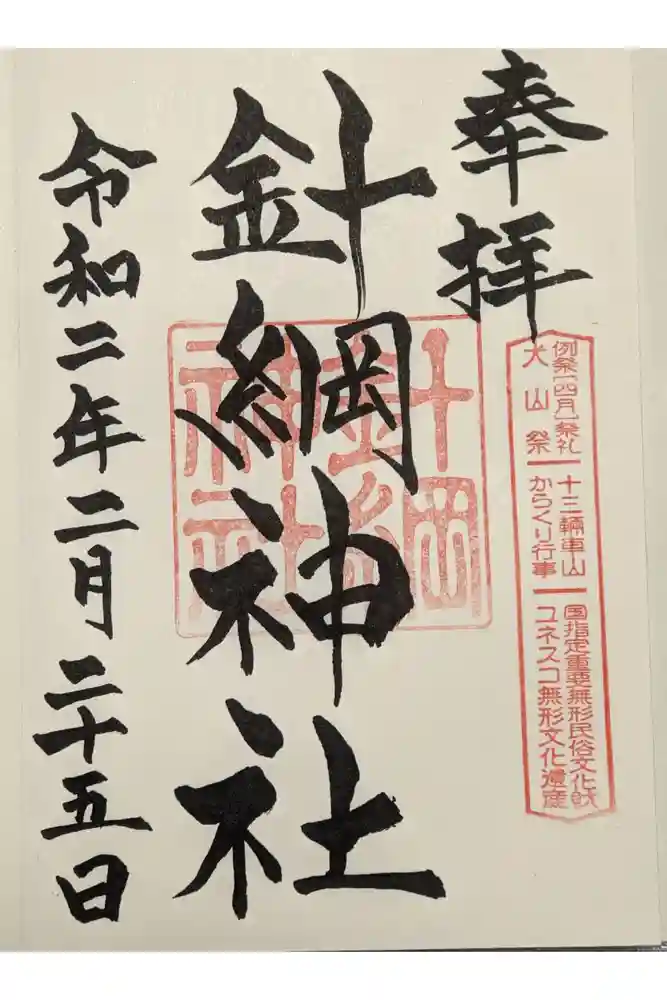 奉拝
例祭[四月]祭礼
犬山祭
十三輛車山
からくり行事
国指定重要無形民俗文化財
ユネスコ無形文化遺産
針綱神社
針綱
神社
令和二年二月二十五日